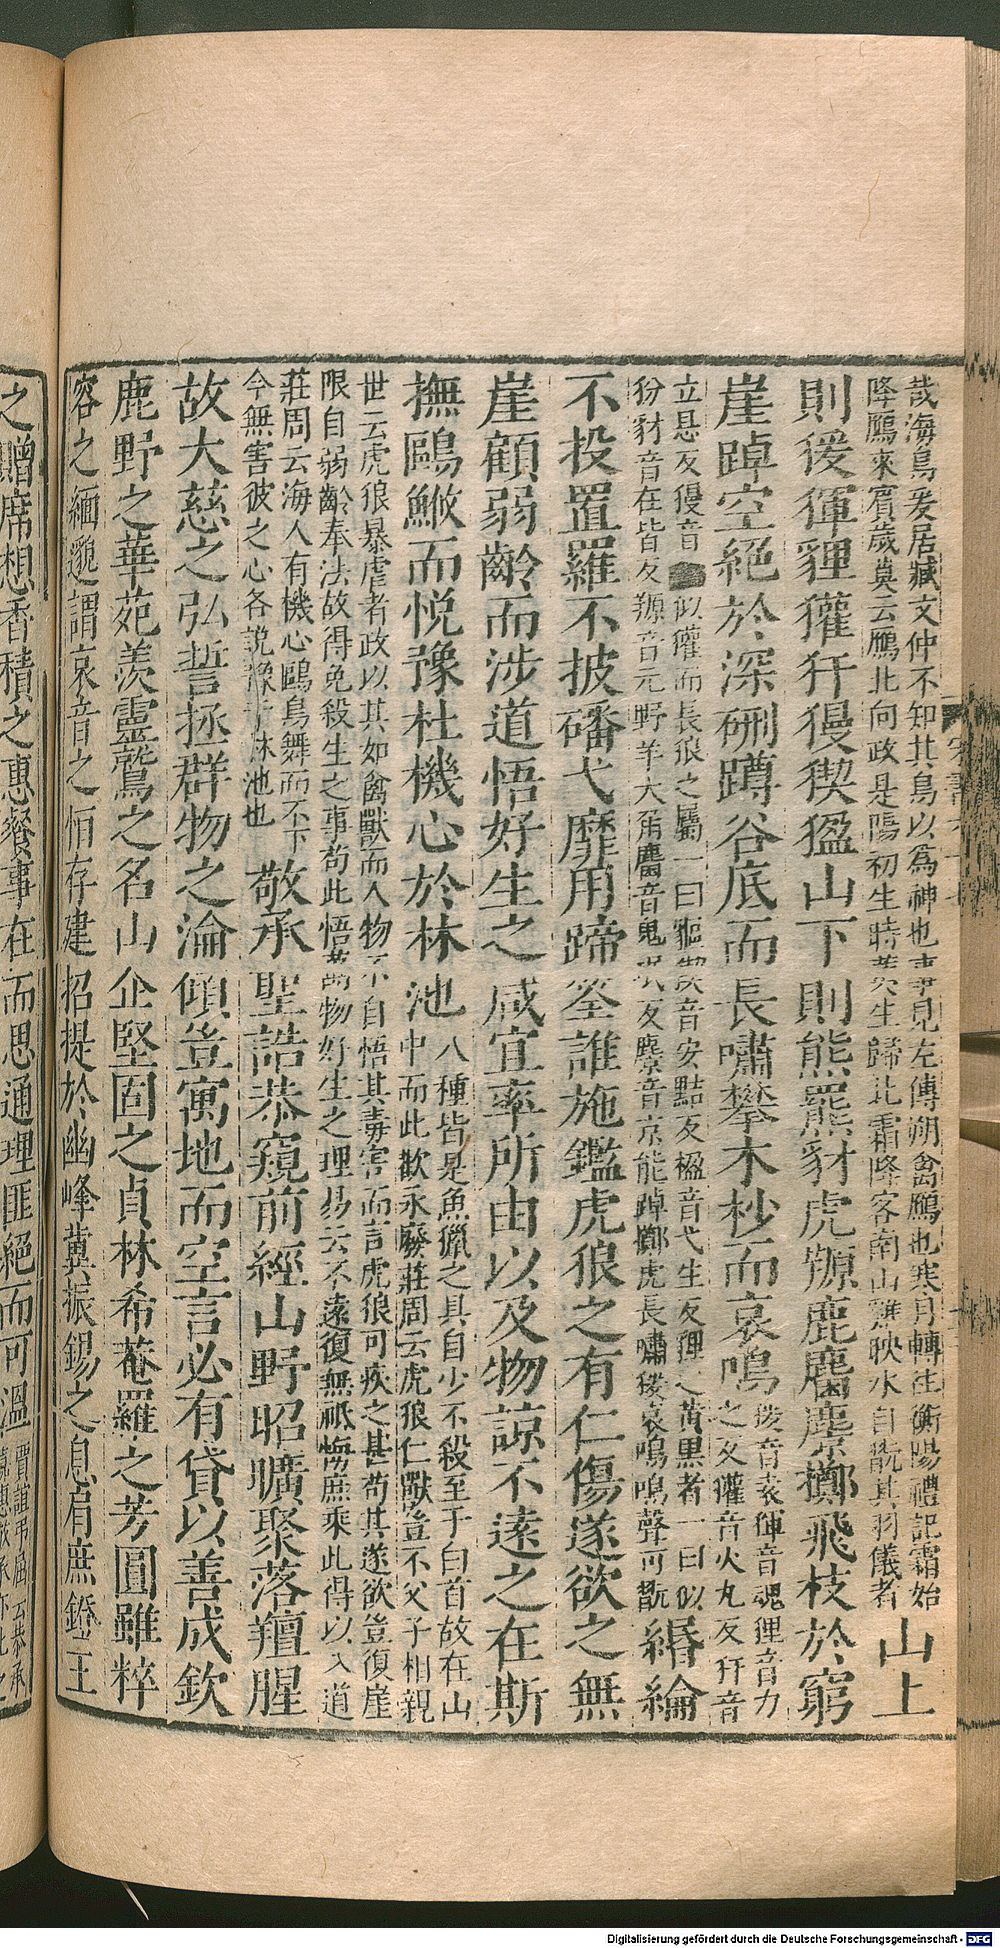 哉海鳥爰居臧文仲不知其鳥以爲神也事見左傳朔禽鴈也寒月轉往衡陽禮記霜始
降鴈來賓歲莫云鴈北向政是陽初生時黃生歸北霜降客南山雞映水自翫其羽儀者
山上
則猨㹆貍獾犴獌猰㺄山下則熊羆豺虎羱鹿麕麖擲飛枝於窮
崖踔空絕於深硎蹲谷底而長嘯攀木杪而哀鳴
猨音袁㹆音魂狸音力
之反獾音火丸反犴音
立悬反獌音 似獾而長狼之屬一曰貙猰音安黠反㺄音弋生反狸之黃黑者一曰似
豺音在皆反羱音元野羊大角麕音鬼珉反麖音京能踔擲虎長嘯猨哀鳴鳴聲可翫
緡綸
不投置羅不披磻弋靡用蹄筌誰施鑑虎狼之有仁傷遂欲之無
崖顧弱齡而涉道悟好生之咸宜率所由以及物諒不遠之在斯
撫鷗鮍而悅豫杜機心於林池
八種皆是魚獵之具自少不殺至于白首故在山
中而此歡永廢莊周云虎狼仁獸豈不父子相親
世云虎狼暴虐者政以其如禽獸而人物不自悟其毒害而言虎狼可疾之甚苟其遂欲豈復崖
限自弱齡奉法故得免殺生之事苟此悟萬物好生之理易云不遠復無祇悔庶乘此得以入道
莊周云海人有機心鷗鳥舞而不下
今無害彼之心各說豫于林池也
敬承聖誥恭窺前經山野昭曠聚落羶腥
故大慈之弘誓拯群物之淪傾豈寓地而空言必有貸以善成欽
鹿野之華苑羨靈鷲之名山企堅固之貞林希菴羅之芳園雖粹
容之緬邈謂哀音之恒存建招提於幽峰冀振錫之息肩庶鐙王
之贈席想香積之惠餐事在而思通理匪絕而可溫
Digitalisierung gefördert durch die Deutsche Forschungsgemeinschaft - DFG